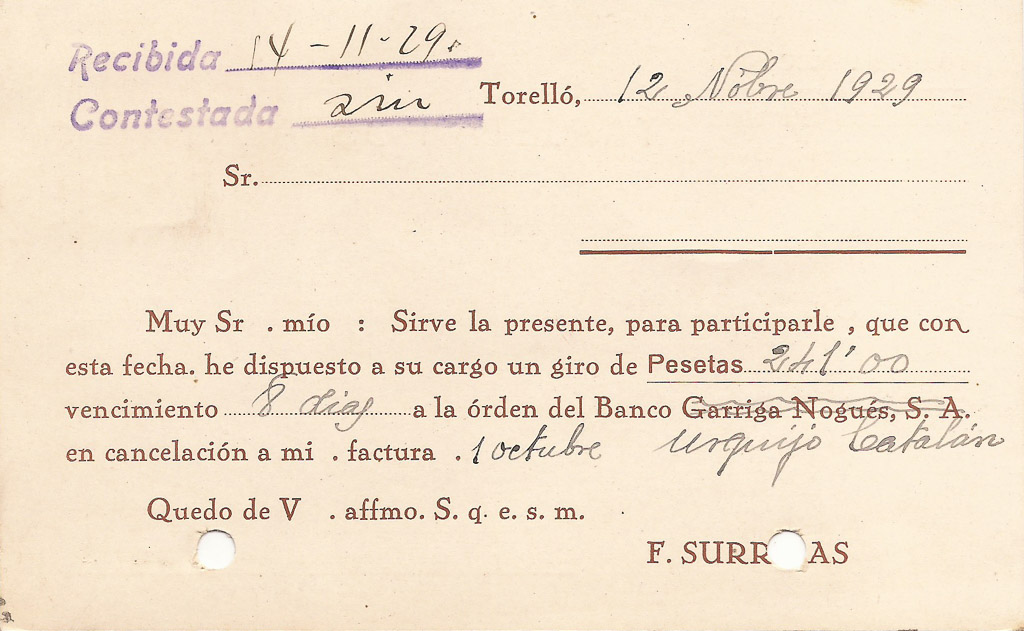 Recibida 14-11-29.
Contestada sin
Torelló, 12 Nobre 1929
Sr.
Muy Sr . mío : Sirve la presente, para participarle , que con
esta fecha. he dispuesto a su cargo un giro de Pesetas 241'00
vencimiento 8 dias a la órden del Banco Garriga Nogués, S. A.
en cancelación a mi . factura . 1 octubre Urquijo Catalán
Quedo de V . affmo. S. q. e. s. m.
F. SURR AS